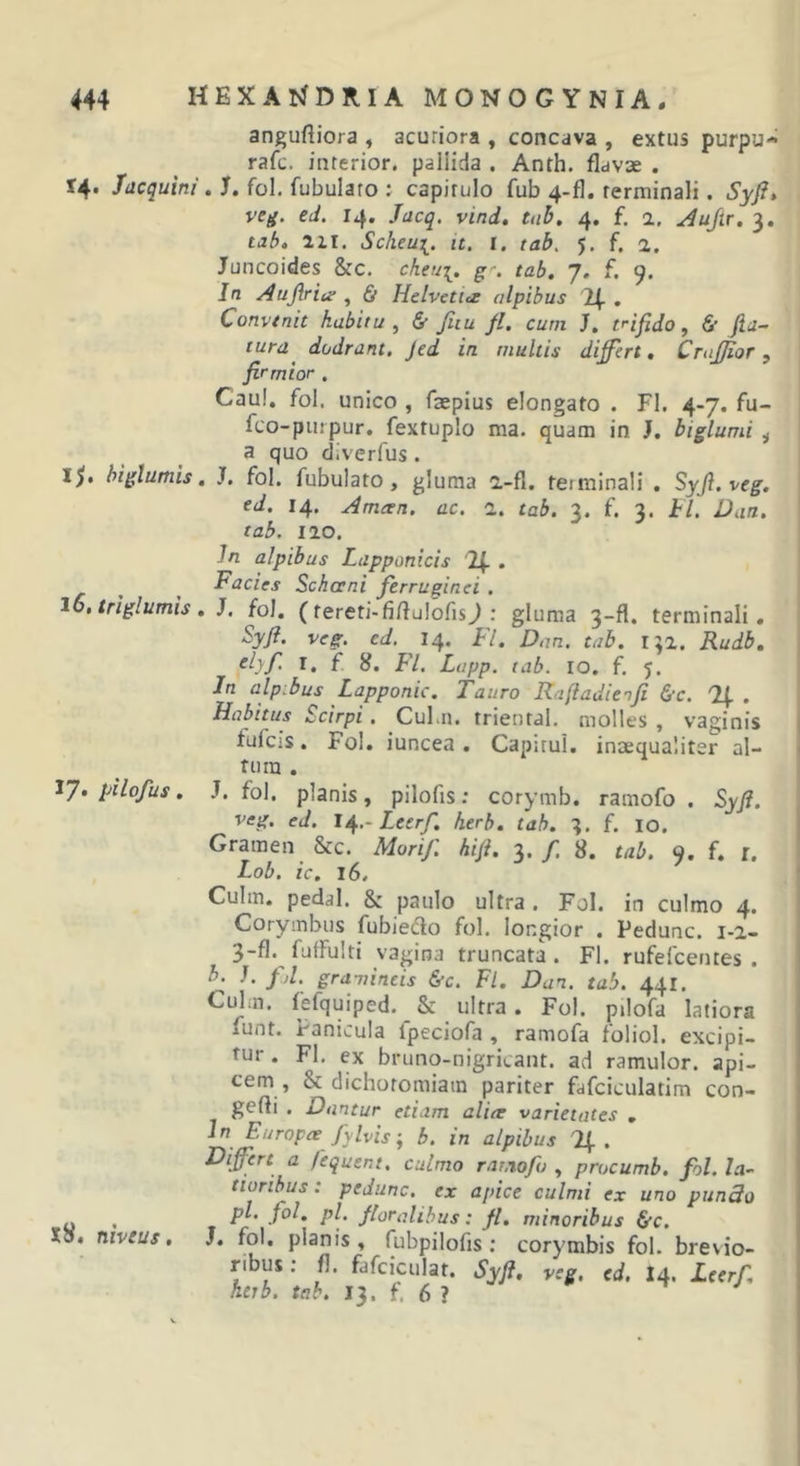 444 HEXANDRIA MONOGYNIA.
anguſtiora , acutiora , concava , extus purpu-
raſc. interior. pallida . Anth. flavæ .
14. Jacquini . J. fol. ſubulato : capitulo ſub 4-fl. terminali . Syſt.
veg. ed. 14. Jacq. vind. tab. 4. f. 2. Auſtr. 3.
tab. 221. Scheuz. it. 1. tab. 5. f. 2.
Juncoides &c. cheuz. gr. tab. 7. f. 9.
In Auſtriæ , & Helvetiæ alpibus ♃ .
Convenit habitu , & ſitu fl. cum J. trifido , & ſta-
tura dodrant. ſed in multis differt . Craſſior ,
firmior .
Caul. fol. unico , ſæpius elongato . Fl. 4-7. fu-
ſco-purpur. ſextuplo ma. quam in J. biglumi ,
a quo diverſus .
15. biglumis . J. fol. ſubulato , gluma 2-fl. terminali . Syſt. veg.
ed. 14. Amæn. ac. 2. tab. 3. f. 3. Fl. Dan.
tab. 120.
In alpibus Lapponicis ♃ .
Facies Schœni ferruginei .
16. triglumis . J. fol. (tereti-fiſtuloſis) : gluma 3-fl. terminali .
Syſt. veg. ed. 14. Fl. Dan. tab. 132. Rudb.
elyſ. 1. f 8. Fl. Lapp. tab. 10. f. 5.
In alpibus Lapponic. Tauro Raſtadienſi &c. ♃ .
Habitus Scirpi . Culm. triental. molles , vaginis
fuſcis . Fol. iuncea . Capitul. inæqualiter al-
tum .
17. piloſus . J. fol. planis , piloſis : corymb. ramoſo . Syſt.
veg. ed. 14.- Leerſ. herb. tab. 3. f. 10.
Gramen &c. Moriſ. hiſt. 3. ſ. 8. tab. 9. f. 1.
Lob. ic. 16.
Culm. pedal. & paulo ultra . Fol. in culmo 4.
Corymbus ſubiecto fol. longior . Pedunc. 1-2-
3-fl. ſuffulti vagina truncata . Fl. rufeſcentes .
b. J. fol. gramineis &c. Fl. Dan. tab. 441.
Culm. ſeſquiped. & ultra . Fol. piloſa latiora
ſunt. Panicula ſpecioſa , ramoſa foliol. excipi-
tur . Fl. ex bruno-nigricant. ad ramulor. api-
cem , & dichotomiam pariter faſciculatim con-
geſti . Dantur etiam aliæ varietates .
In Europæ ſylvis ; b. in alpibus ♃ .
Differt a ſequent. culmo ramoſo , procumb. fol. la-
tioribus : pedunc. ex apice culmi ex uno puncto
pl. fol. pl. floralibus : fl. minoribus &c.
18. niveus . J. fol. planis , ſubpiloſis : corymbis fol. brevio-
ribus : fl. faſciculat. Syſt. veg. ed. 14. Leerſ.
herb. tab. 13. f. 6 ?